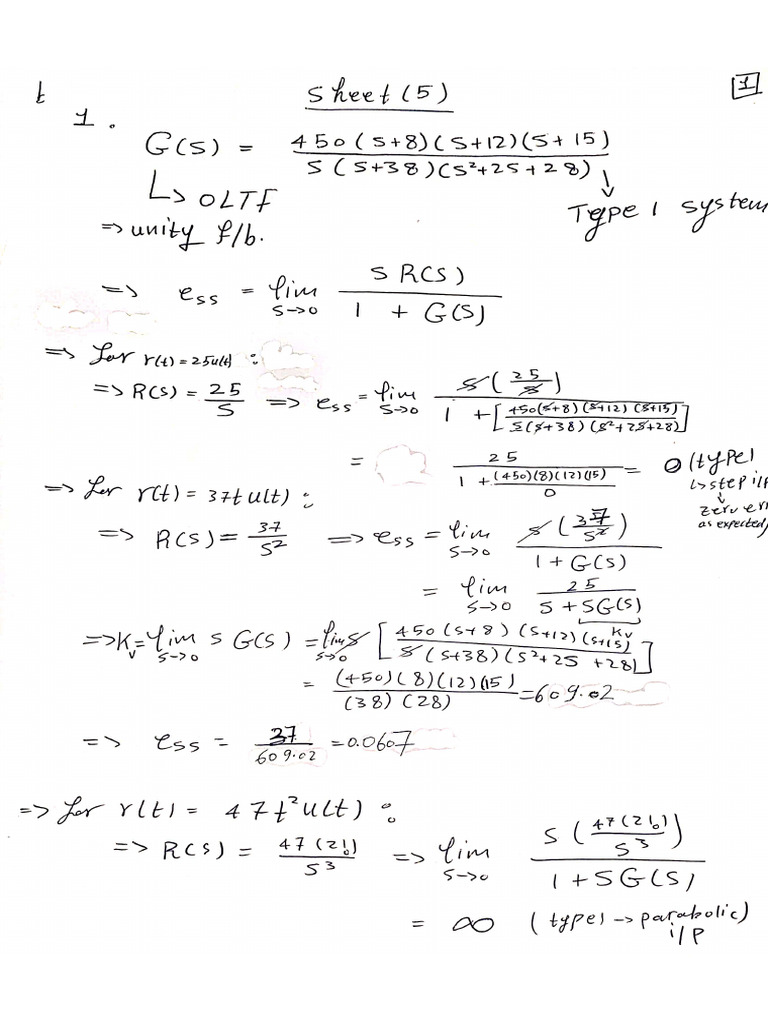 t
Sheet (5)
1
1.
G(S) = 450(S+8)(S+12)(S+15) / S(S+38)(S²+2S+28)
↳ OLTF
↓ Type 1 system
=> unity f/b.
=> e_ss = lim_{S→0} S R(S) / 1 + G(S)
=> for r(t) = 25u(t) :
=> R(S) = 25/S => e_ss = lim_{S→0} S(25/S) / 1 + [450(S+8)(S+12)(S+15) / S(S+38)(S²+2S+28)]
= 25 / 1 + (450)(8)(12)(15)/0 = 0 (type 1
↳ step i/p
↓
zero err
as expected)
=> for r(t) = 37t u(t) :
=> R(S) = 37/S² => e_ss = lim_{S→0} S(37/S²) / 1 + G(S)
= lim_{S→0} 25 / S + SG(S)
Kv
=> Kv = lim_{S→0} S G(S) = lim_{S→0} S [450(S+8)(S+12)(S+15) / S(S+38)(S²+2S+28)]
= (450)(8)(12)(15) / (38)(28) = 609.02
=> e_ss = 37 / 609.02 = 0.0607
=> for r(t) = 47t²u(t) :
=> R(S) = 47(2!) / S³ => lim_{S→0} S(47(2!)/S³) / 1 + SG(S)
= ∞ (type 1 → parabolic)
i/p